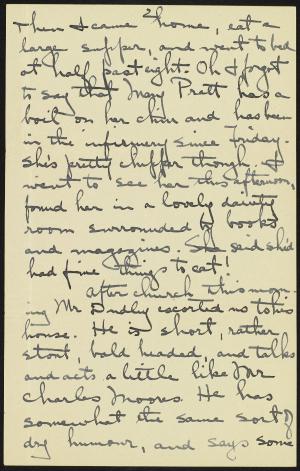 Then I came home, eat a
large supper, and went to bed
at half past eight. Oh I forgot
to say that Mary Pratt has a
boil on her chin and has been
in the infirmery since Friday.
She's pretty chipper though. I
went to see her this afternoon,
found her in a lovely dainty
room surrounded by books
and magazines. She said she'd
had fine things to eat!
After church this morn-
ing Mr Dudley escorted us to his
house. He is short, rather
stout, bald headed, and talks
and acts a little like Mr
Charles Moores. He has
somewhat the same sort of
dry humour, and says some